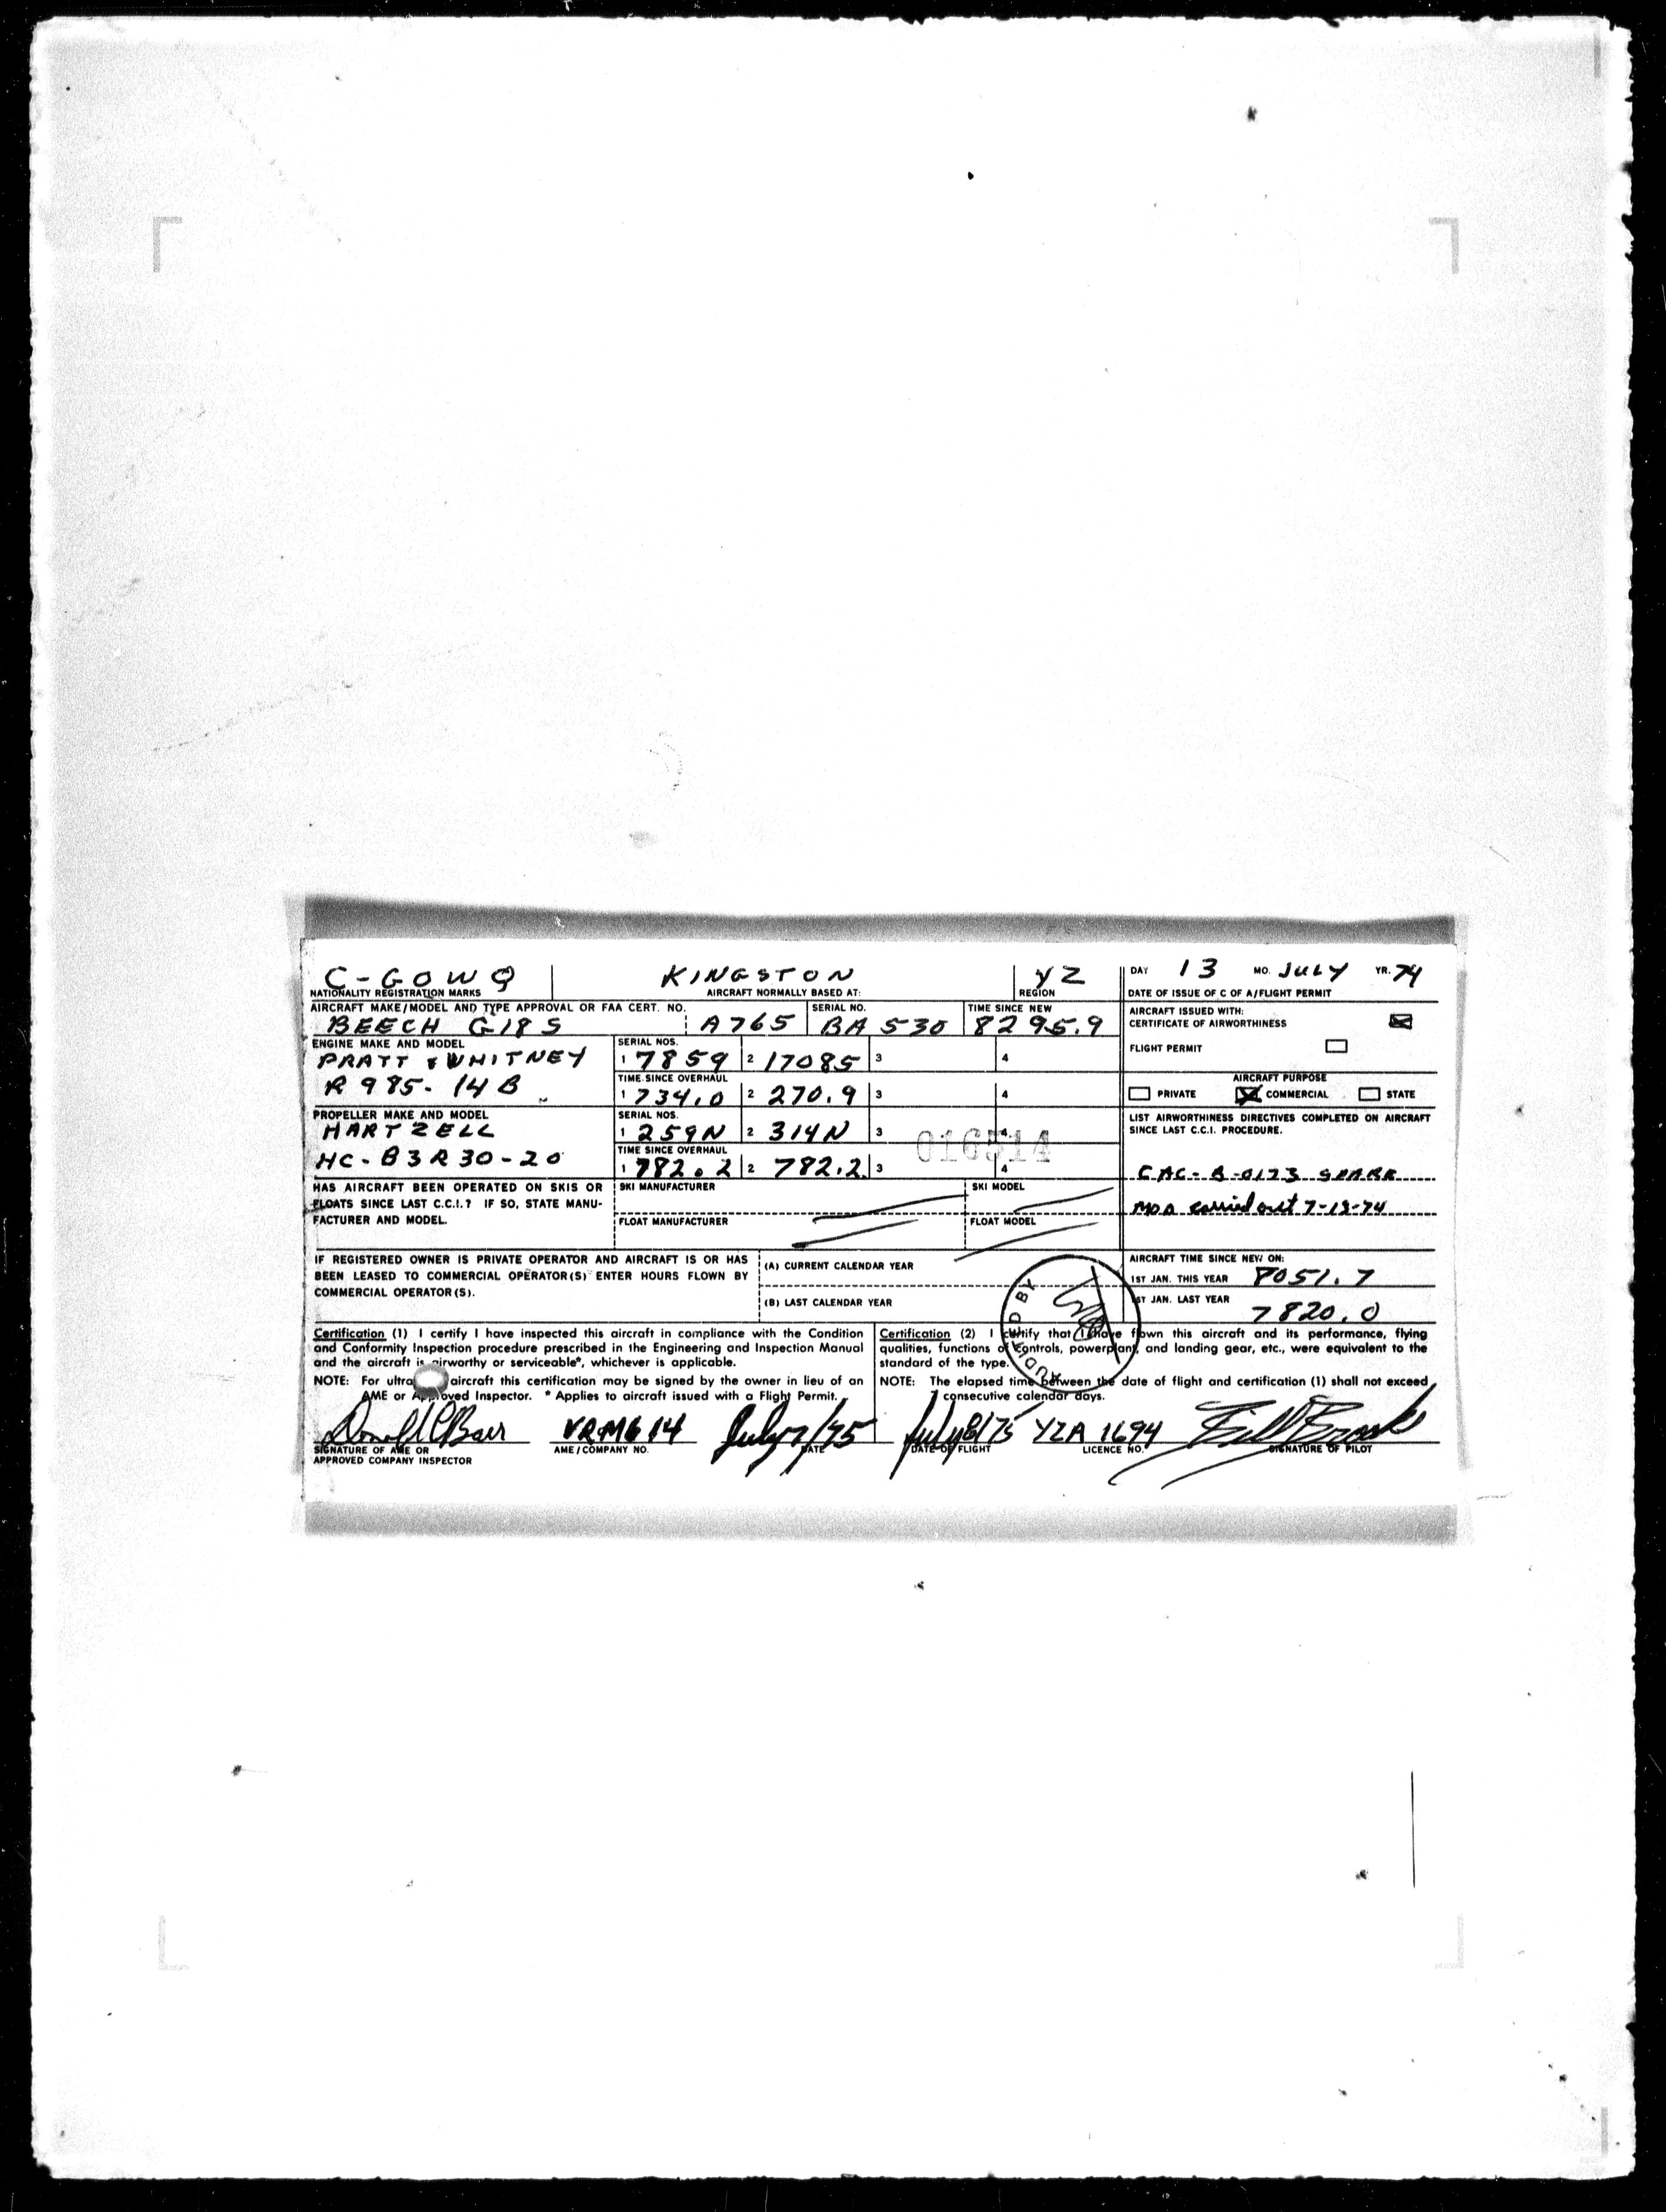 C-GOWQ KINGSTON YZ DAY 13 MO. JULY YR. 74
NATIONALITY REGISTRATION MARKS AIRCRAFT NORMALLY BASED AT: REGION DATE OF ISSUE OF C OF A/FLIGHT PERMIT
AIRCRAFT MAKE/MODEL AND TYPE APPROVAL OR FAA CERT. NO. SERIAL NO. TIME SINCE NEW AIRCRAFT ISSUED WITH:
BEECH G18S A765 BA 530 8295.9 CERTIFICATE OF AIRWORTHINESS
ENGINE MAKE AND MODEL SERIAL NOS.
PRATT & WHITNEY 1 7859 2 17085 3 4 FLIGHT PERMIT
TIME SINCE OVERHAUL AIRCRAFT PURPOSE
R 985-14B 1 734.0 2 270.9 3 4 PRIVATE COMMERCIAL STATE
PROPELLER MAKE AND MODEL SERIAL NOS. LIST AIRWORTHINESS DIRECTIVES COMPLETED ON AIRCRAFT
HARTZELL 1 259N 2 314N 3 4 SINCE LAST C.C.I. PROCEDURE.
016514
TIME SINCE OVERHAUL
HC-B3R30-20 1 782.2 2 782.2 3 4 CAC-B-0123 SPARE
HAS AIRCRAFT BEEN OPERATED ON SKIS OR SKI MANUFACTURER SKI MODEL
FLOATS SINCE LAST C.C.I.? IF SO, STATE MANU- carried out 7-12-74
FACTURER AND MODEL. FLOAT MANUFACTURER FLOAT MODEL
IF REGISTERED OWNER IS PRIVATE OPERATOR AND AIRCRAFT IS OR HAS (A) CURRENT CALENDAR YEAR AIRCRAFT TIME SINCE NEW ON:
BEEN LEASED TO COMMERCIAL OPERATOR(S) ENTER HOURS FLOWN BY 1ST JAN. THIS YEAR 8051.7
COMMERCIAL OPERATOR(S). (B) LAST CALENDAR YEAR 1ST JAN. LAST YEAR 7820.0
AUDITED BY
Certification (1) I certify I have inspected this aircraft in compliance with the Condition
and Conformity Inspection procedure prescribed in the Engineering and Inspection Manual
and the aircraft is airworthy or serviceable*, whichever is applicable.
NOTE: For ultra aircraft this certification may be signed by the owner in lieu of an
AME or Approved Inspector. * Applies to aircraft issued with a Flight Permit.
Certification (2) I certify that I have flown this aircraft and its performance, flying
qualities, functions of controls, powerplant, and landing gear, etc., were equivalent to the
standard of the type.
NOTE: The elapsed time between the date of flight and certification (1) shall not exceed
7 consecutive calendar days.
VRM614 July 7/75 July 8/75 YZA 1694
SIGNATURE OF AME OR AME/COMPANY NO. DATE DATE OF FLIGHT LICENCE NO. SIGNATURE OF PILOT
APPROVED COMPANY INSPECTOR